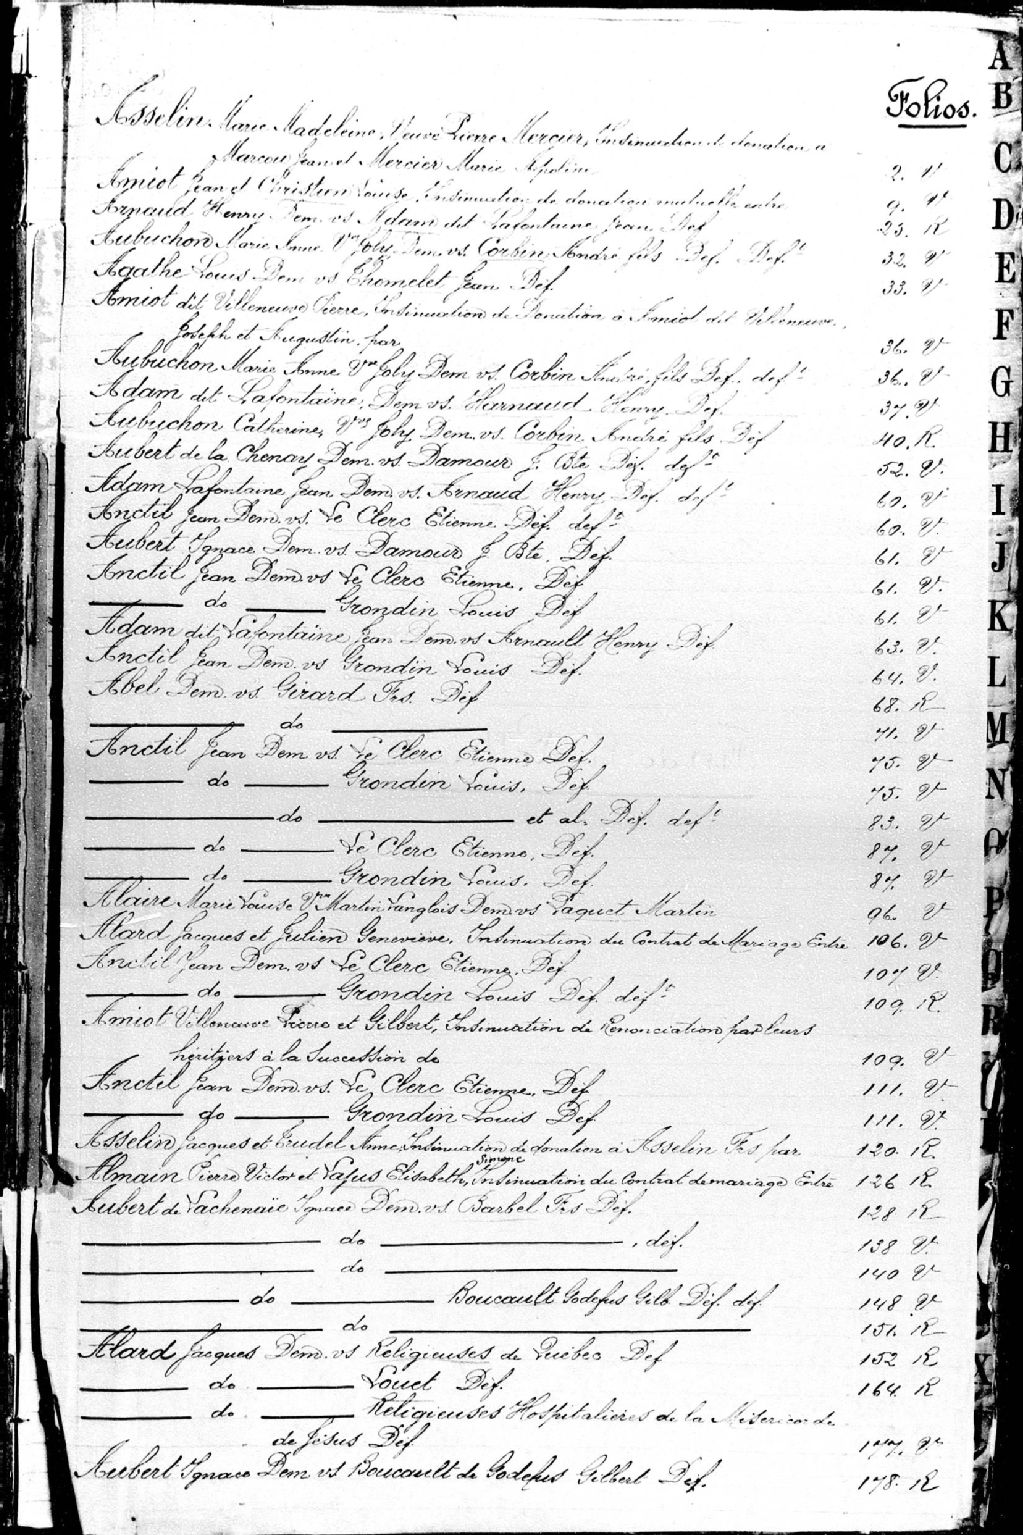 Folios.
Asselin Marie Madeleine, Veuve Pierre Mercier, Insinuation de donation a
Marcou Jean et Mercier Marie Apoline 2. V
Amiot Jean et Christien Louise, Insinuation de donation mutuelle entre 9. V
Arnaud Henry Dem. vs Adam dit Lafontaine Jean, Def 23. R
Aubuchon Marie Anne Vve Joly Dem. vs. Corbin André fils Def. Deft 32. V
Agathe Louis Dem vs Thomelet Jean Def. 33. V
Amiot dit Villeneuve Pierre, Insinuation de Donation a Amiot dit Villeneuve,
Joseph et Augustin par 36. V
Aubuchon Marie Anne Vve Joly Dem vs Corbin André fils Def. deft 36. V
Adam dit Lafontaine, Dem vs. Harnaud Henry Def 37. V
Aubuchon Catherine, Vve Joly Dem. vs. Corbin André fils Def 40. R.
Aubert de la Chenay Dem. vs Damour J. Bte Def. deft 52. V.
Adam Lafontaine Jean Dem vs. Arnaud Henry Def. deft 60. V
Anctil Jean Dem. vs. Le Clerc Etienne Def. deft 60. V.
Aubert Ignace Dem. vs. Damour J Bte. Def. 61. V
Anctil Jean Dem vs Le Clerc Etienne, Def 61. V.
do Grondin Louis Def 61. V
Adam dit Lafontaine Jean Dem. vs Arnault Henry Def 63. V.
Anctil Jean Dem. vs Grondin Louis Def. 64. V.
Abel Dem. vs. Girard Frs. Def 68. R
do 71. V
Anctil Jean Dem vs. Le Clerc Etienne Def. 75. V
do Grondin Louis, Def 75. V
do et al. Def. deft 83. V
do Le Clerc Etienne, Def. 87. V
do Grondin Louis. Def. 87. V
Alaire Marie Louise Vve Martin Langlois Dem vs Paquet Martin 96. V
Alard Jacques et Julien Geneviève, Insinuation du Contrat de Mariage Entre 106. V
Anctil Jean Dem. vs Le Clerc Etienne. Def 107 V.
do Grondin Louis Def. deft 109. R.
Amiot Villeneuve Pierre et Gilbert, Insinuation de Renonciation par leurs
héritiers à la Succession de 109. V
Anctil Jean Dem. vs. Le Clerc Etienne, Def 111. V.
do Grondin Louis Def 111. V.
Asselin Jacques et Trudel Anne, Insinuation de donation à Asselin Frs par 120. R.
Simone
Almain Pierre Victor et Lajus Elisabeth, Insinuation du Contrat de mariage Entre 126 R.
Aubert de Lachenaie Ignace Dem. vs Barbel Frs Def. 128 R
do , def. 138 V.
do 140 V
do Boucault Godefus Gilb Def. def. 148 V
do 151. R
Alard Jacques Dem. vs Religieuses de Quebec Def 152 R
do Louet Def. 164. R
do Religieuses Hospitalières de la Misericorde
de Jésus Def 177. V
Aubert Ignace Dem vs Boucault de Godefus Gilbert Def. 178. R
A
B
C
D
E
F
G
H
I
J
K
L
M
N
O
P
Q
R
X